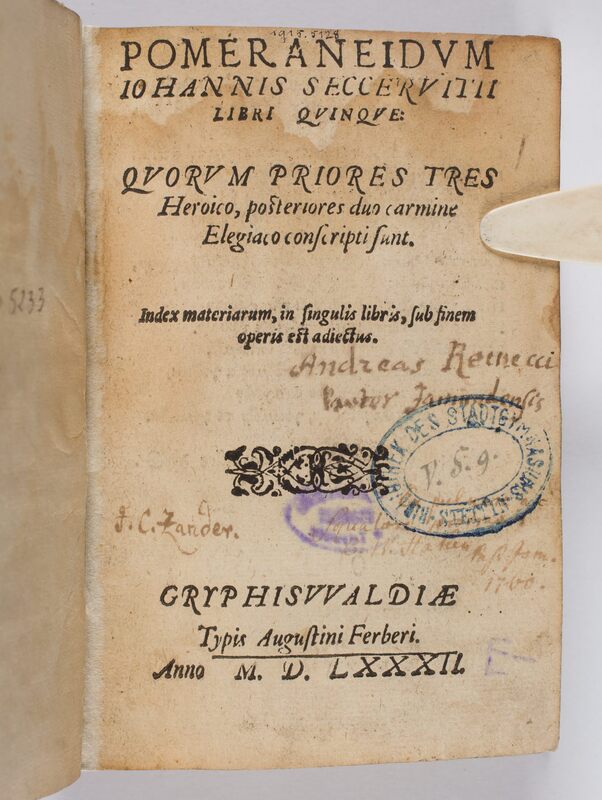 1918.5128
POMERANEIDVM
IOHANNIS SECCERVITII
LIBRI QVINQVE:
QVORVM PRIORES TRES
Heroico, posteriores duo carmine
Elegiaco conscripti sunt.
5233
Index materiarum, in singulis libris, sub finem
operis est adiectus.
Andreas Reinecci
Pastor Jamundensis
BIBLIOTHEK DES STADTGYMNASIUMS STETTIN
V. 8. 9.
J. C. Zander.
1700.
GRYPHISVVALDIÆ
Typis Augustini Ferberi.
Anno M. D. LXXXII.
E-